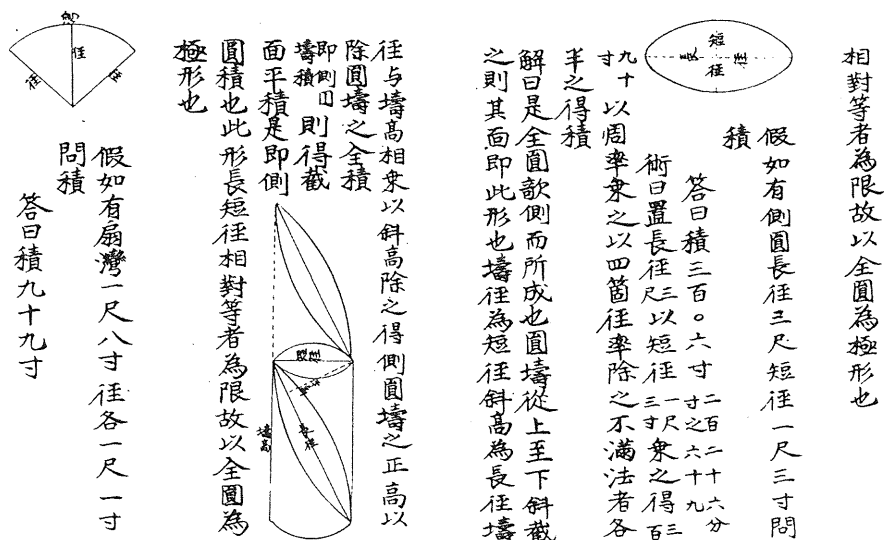 相對等者為限故以全圓為極形也
短径
長径
假如有側圓長径三尺短径一尺三寸問
積
答曰積三百〇六寸二百二十六分寸之六十九
術曰置長径三尺以短径一尺三寸乗之得三百
九十寸以周率乗之以四箇径率除之不滿法者各
半之得積
解曰是全圓欹側而所成也圓壔從上至下斜截
之則其面即此形也壔径為短径斜高為長径壔
径与壔高相乗以斜高除之得側圓壔之正高以
除圓壔之全積
即側圓壔積則得截
面平積是即側
短径
長径
壔高
圓積也此形長短径相對等者為限故以全圓為
極形也
径
径
径
假如有扇灣一尺八寸径各一尺一寸
問積
答曰積九十九寸